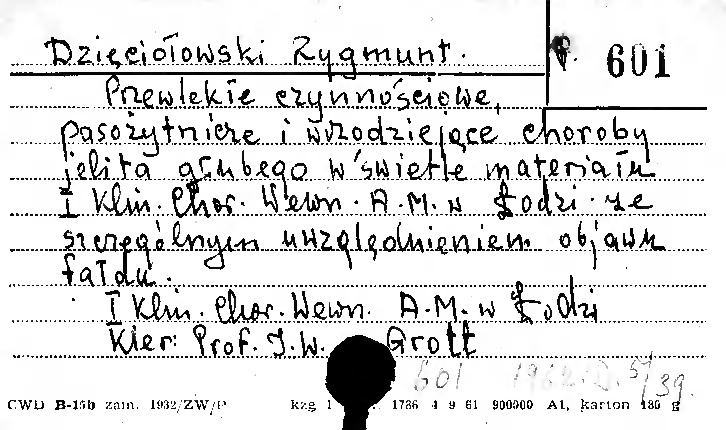 Dzięciołowski Zygmunt.
601
Przewlekłe czynnościowe,
pasożytnicze i wrzodziejące choroby
jelita grubego w świetle materiału
I Klin. Chor. Wewn. A.M. w Łodzi ze
szczególnym uwzględnieniem objawu
fałdu.
I Klin. Chor. Wewn. A.M. w Łodzi
Kier: Prof. J.W. Grott
601 1962. D. 51/39.
CWD B-15b zam. 1932/ZW/P kzg 1 1786 4 9 61 900000 A1, karton 180 g